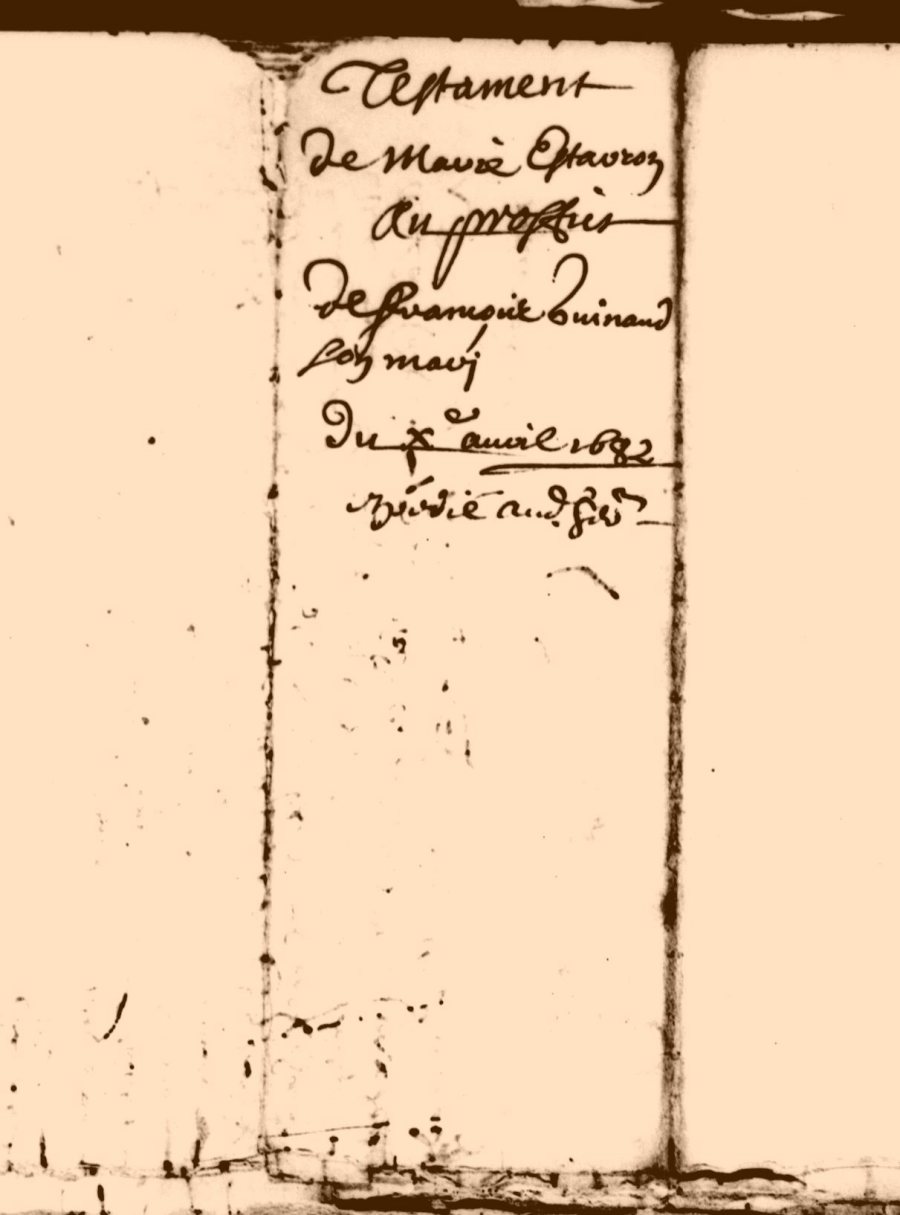 Testament
de Marie Estavron
Au proffit
de François Guinand
son mary
Du Xe avril 1682
Expedié aud.